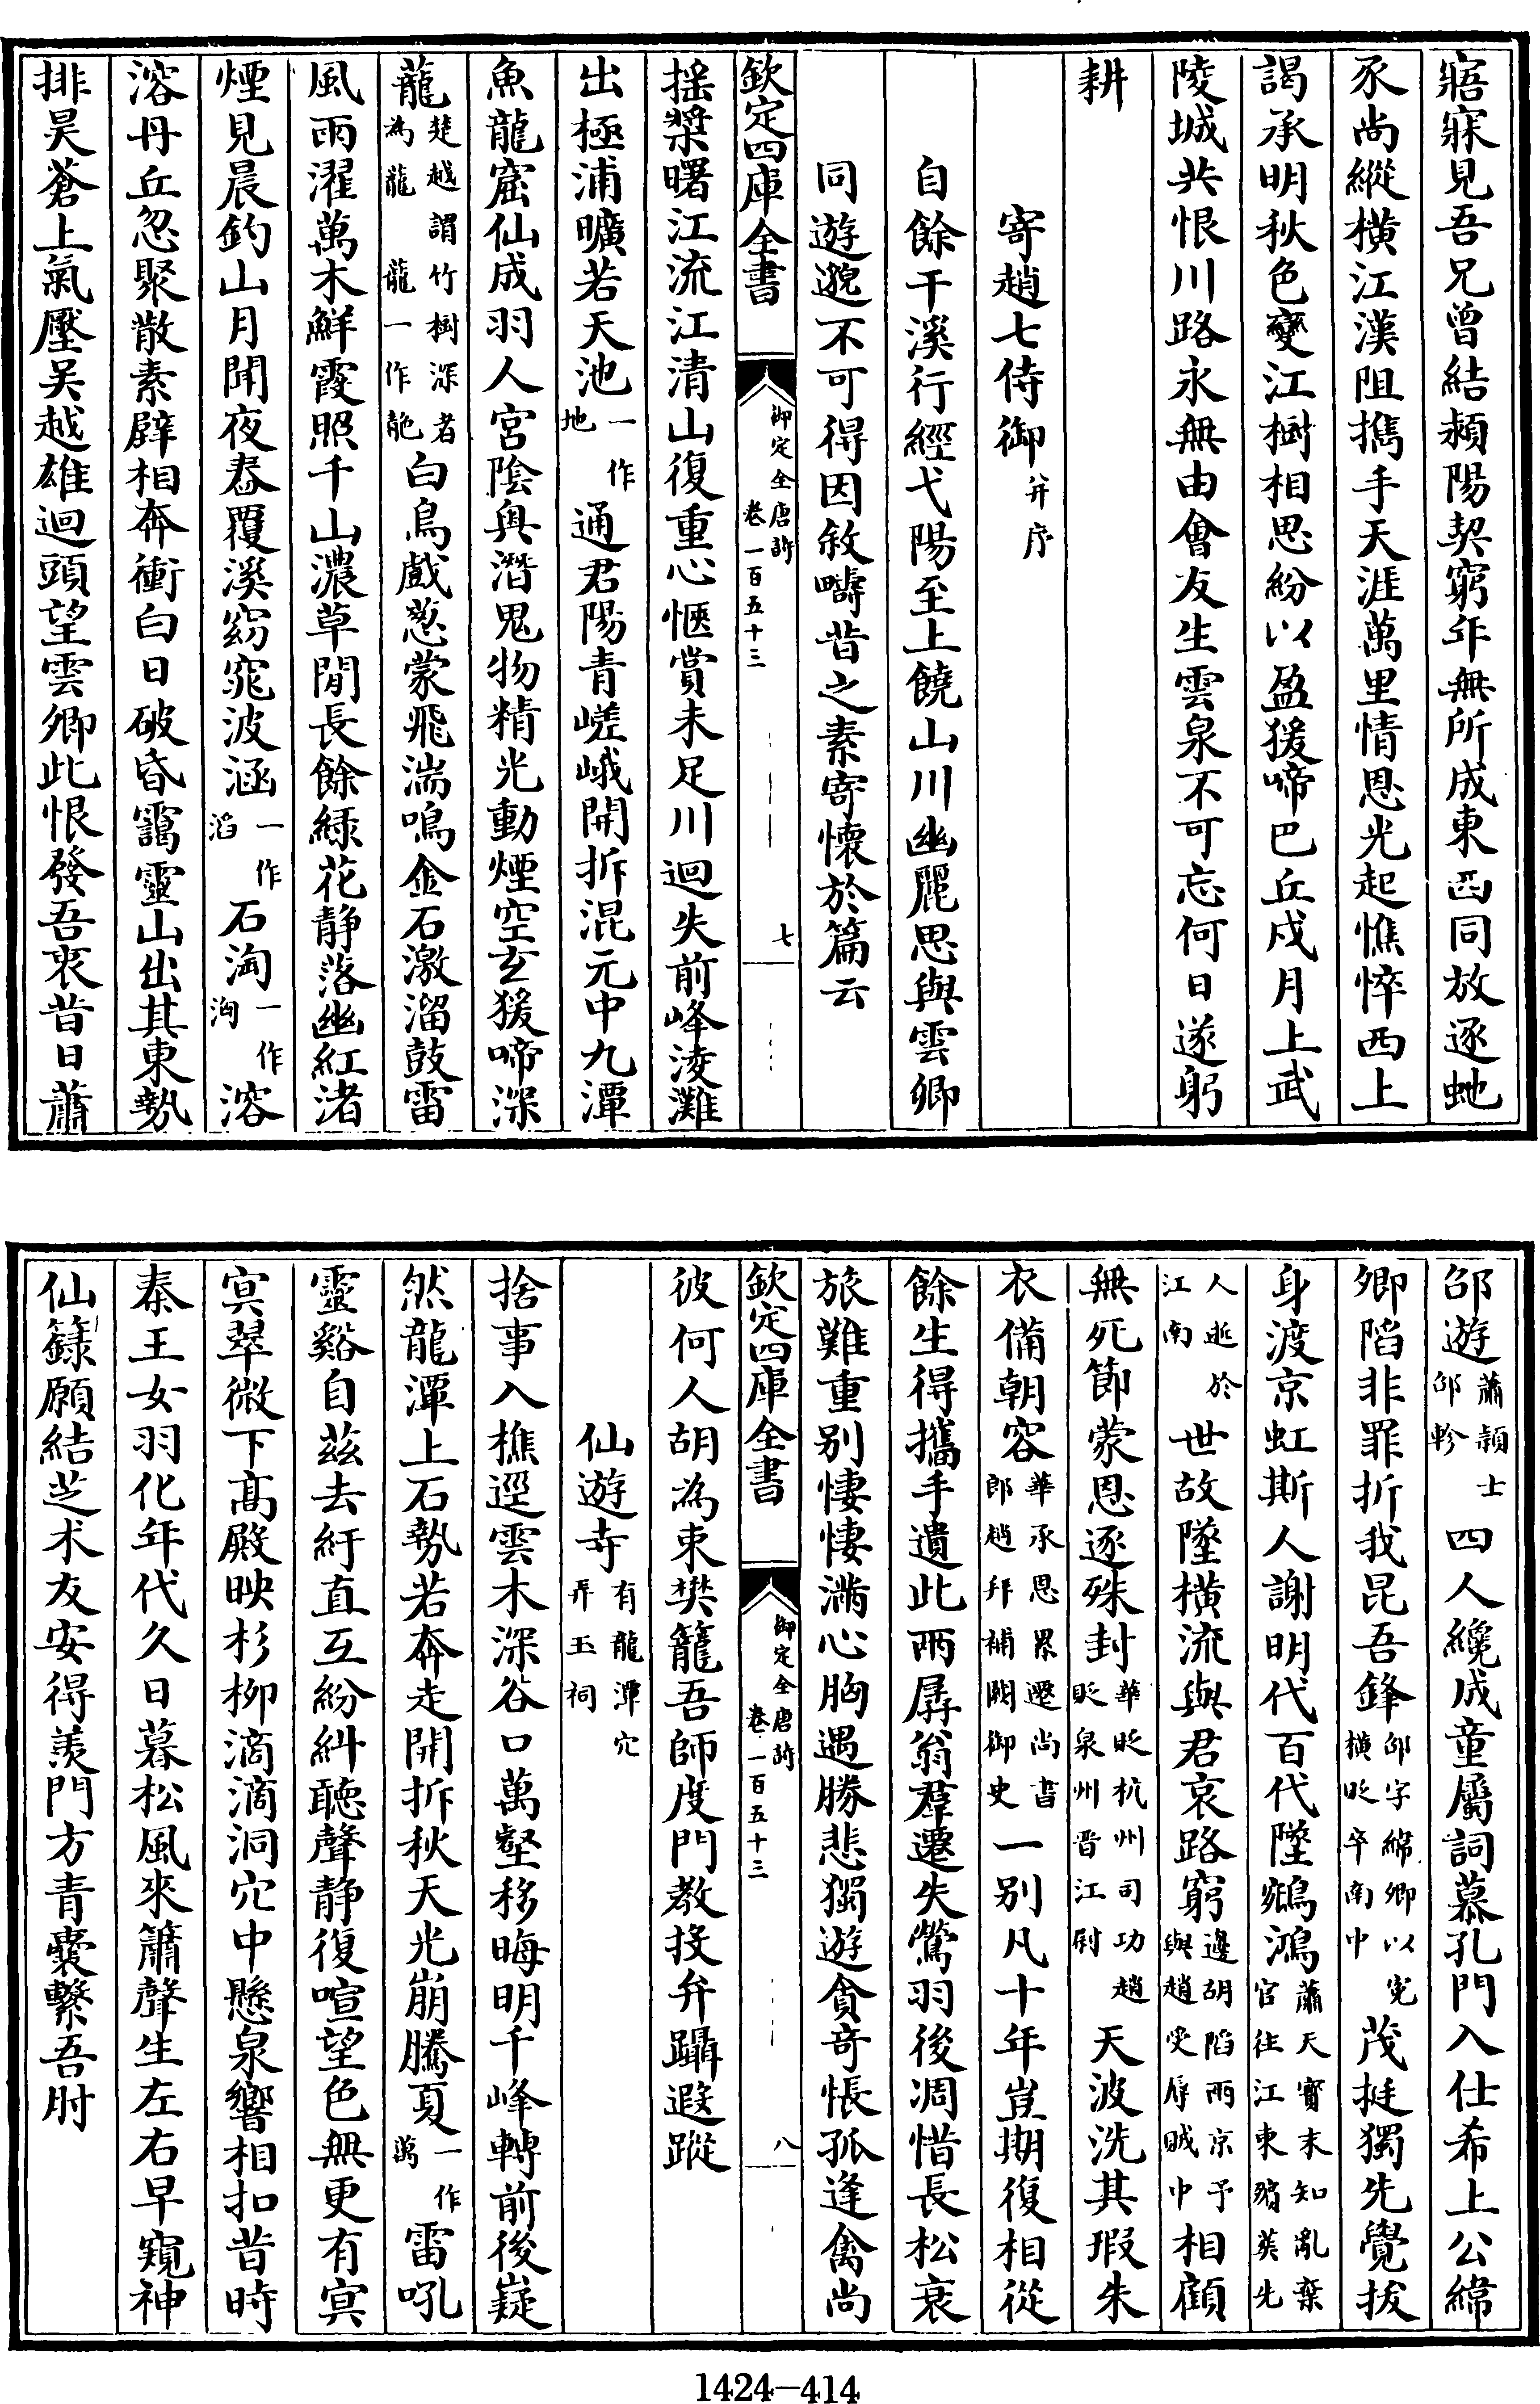 寤寐見吾兄曾結潁陽契窮年無所成東西同放逐蛇
豕尚縱橫江漢阻攜手天涯萬里情恩光起憔悴西上
謁承明秋色變江樹相思紛以盈猨啼巴丘戍月上武
陵城共恨川路永無由會友生雲泉不可忘何日遂躬
耕
寄趙七侍御并序
自餘干溪行經弋陽至上饒山川幽麗思與雲卿
同遊邈不可得因敘疇昔之素寄懷於篇云
欽定四庫全書 御定全唐詩卷一百五十三 七
搖槳曙江流江清山復重心愜賞未足川迴失前峰淩灘
出極浦曠若天池一作地通君陽青嵯峨開拆混元中九潭
魚龍窟仙成羽人宮陰奧潛鬼物精光動煙空玄猨啼深
龍楚越謂竹樹深者為龍龍一作蘢白鳥戲蔥蒙飛湍鳴金石激溜鼓雷
風雨濯萬木鮮霞照千山濃草閒長餘綠花靜落幽紅渚
煙見晨釣山月聞夜舂覆溪窈窕波涵一作滔石淘一作洶溶溶
溶丹丘忽聚散素壁相奔衝白日破昏靄靈山出其東勢
排昊蒼上氣壓吳越雄迴頭望雲卿此恨發吾衷昔日蕭
邵遊蕭頴士邵軫四人纔成童屬詞慕孔門入仕希上公緯
卿陷非罪折我昆吾鋒邵字緯卿以寃橫貶卒南中茂挺獨先覺拔
身渡京虹斯人謝明代百代墜鵷鴻蕭天寶末知亂棄官往江東殯葬先
人逝於江南世故墜橫流與君哀路窮邊胡陷兩京予與趙受辱賊中相顧
無死節蒙恩逐殊封華貶杭州司功趙貶泉州晉江尉天波洗其瑕朱
衣備朝容華承恩累遷尚書郎趙拜補闕御史一別凡十年豈期復相從
餘生得攜手遺此兩孱翁羣遷失鶯羽後凋惜長松衰
旅難重別悽悽滿心胸遇勝悲獨遊貪奇悵孤逢禽尚
欽定四庫全書 御定全唐詩卷一百五十三 八
彼何人胡為束樊籠吾師度門教投弁躡遐蹤
仙遊寺有龍潭穴弄玉祠
捨事入樵逕雲木深谷口萬壑移晦明千峰轉前後嶷
然龍潭上石勢若奔走開拆秋天光崩騰夏一作萬雷吼
靈谿自茲去紆直互紛糾聽聲靜復喧望色無更有冥
冥翠微下高殿映杉柳滴滴洞穴中懸泉響相扣昔時
秦王女羽化年代久日暮松風來簫聲生左右早窺神
仙籙願結芝朮友安得羨門方青囊繫吾肘
1424—414